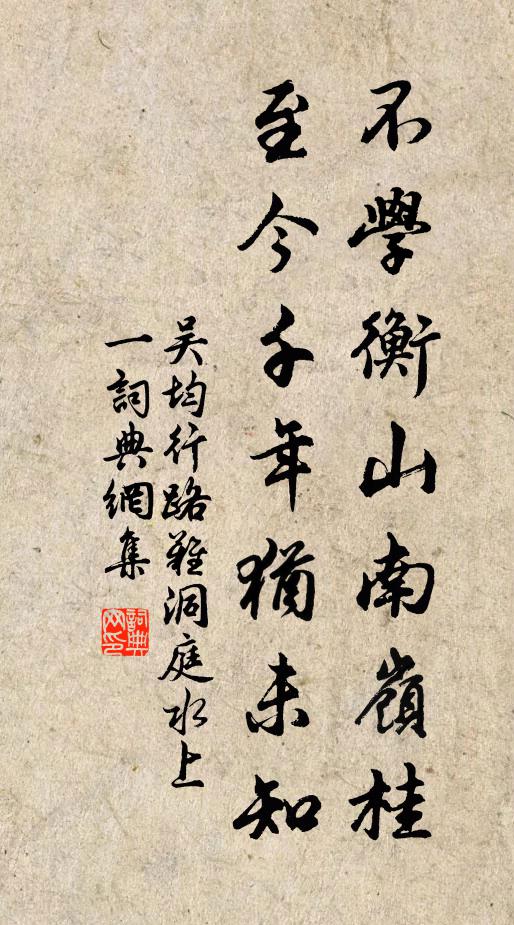 不學衡山南嶺桂
至今千年猶未知
吴均行路難洞庭水上
一詞典網集
詞典网印